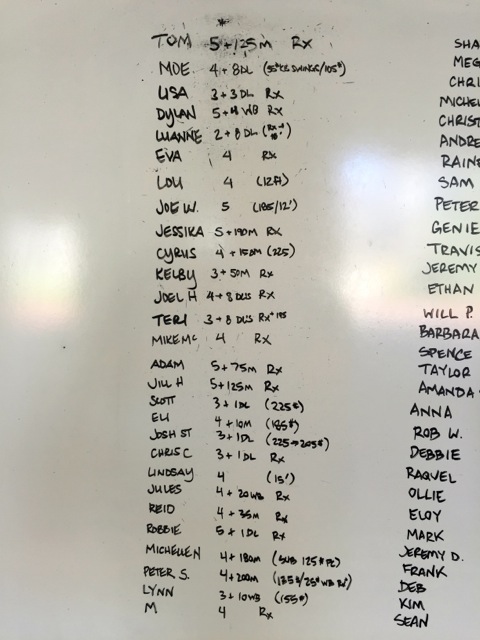 *
TOM 5+125M Rx
MOE 4+8DL (55#KB SWINGS/105#)
LISA 3+3DL Rx
DYLAN 5+4 WB Rx
LUANNE 2+8DL
EVA 4 Rx
LOU 4
JOE W. 5 (185/12')
JESSIKA 5+190M Rx
CYRUS 4+150M (225)
KELBY 3+50M Rx
JOEL H 4+8 DL'S Rx
TERI 3+8 DL'S Rx
MIKE Mc 4 Rx
ADAM 5+75M Rx
JILL H 5+125M Rx
SCOTT 3+1DL (225#)
ELI 4+10M (185#)
JOSH ST 3+1DL (225→205#)
CHRIS C 3+1DL Rx
LINDSAY 4 (15')
JULES 4+20WB Rx
REID 4+35M Rx
ROBBIE 5+1DL Rx
MICHELLE N 4+180M (SUB 125# PC)
PETER S. 4+200M (135#/25# WB
LYNN 3+10WB (155#)
M 4 Rx
SHA
MEG
CHRI
MICHEL
CHRIST
ANDRE
RAINE
SAM
PETER
GENIE
TRAVIS
JEREMY
ETHAN
WILL P.
BARBARA
SPENCE
TAYLOR
AMANDA
ANNA
ROB W.
DEBBIE
RAQUEL
OLLIE
ELOY
MARK
JEREMY D.
FRANK
DEB
KIM
SEAN